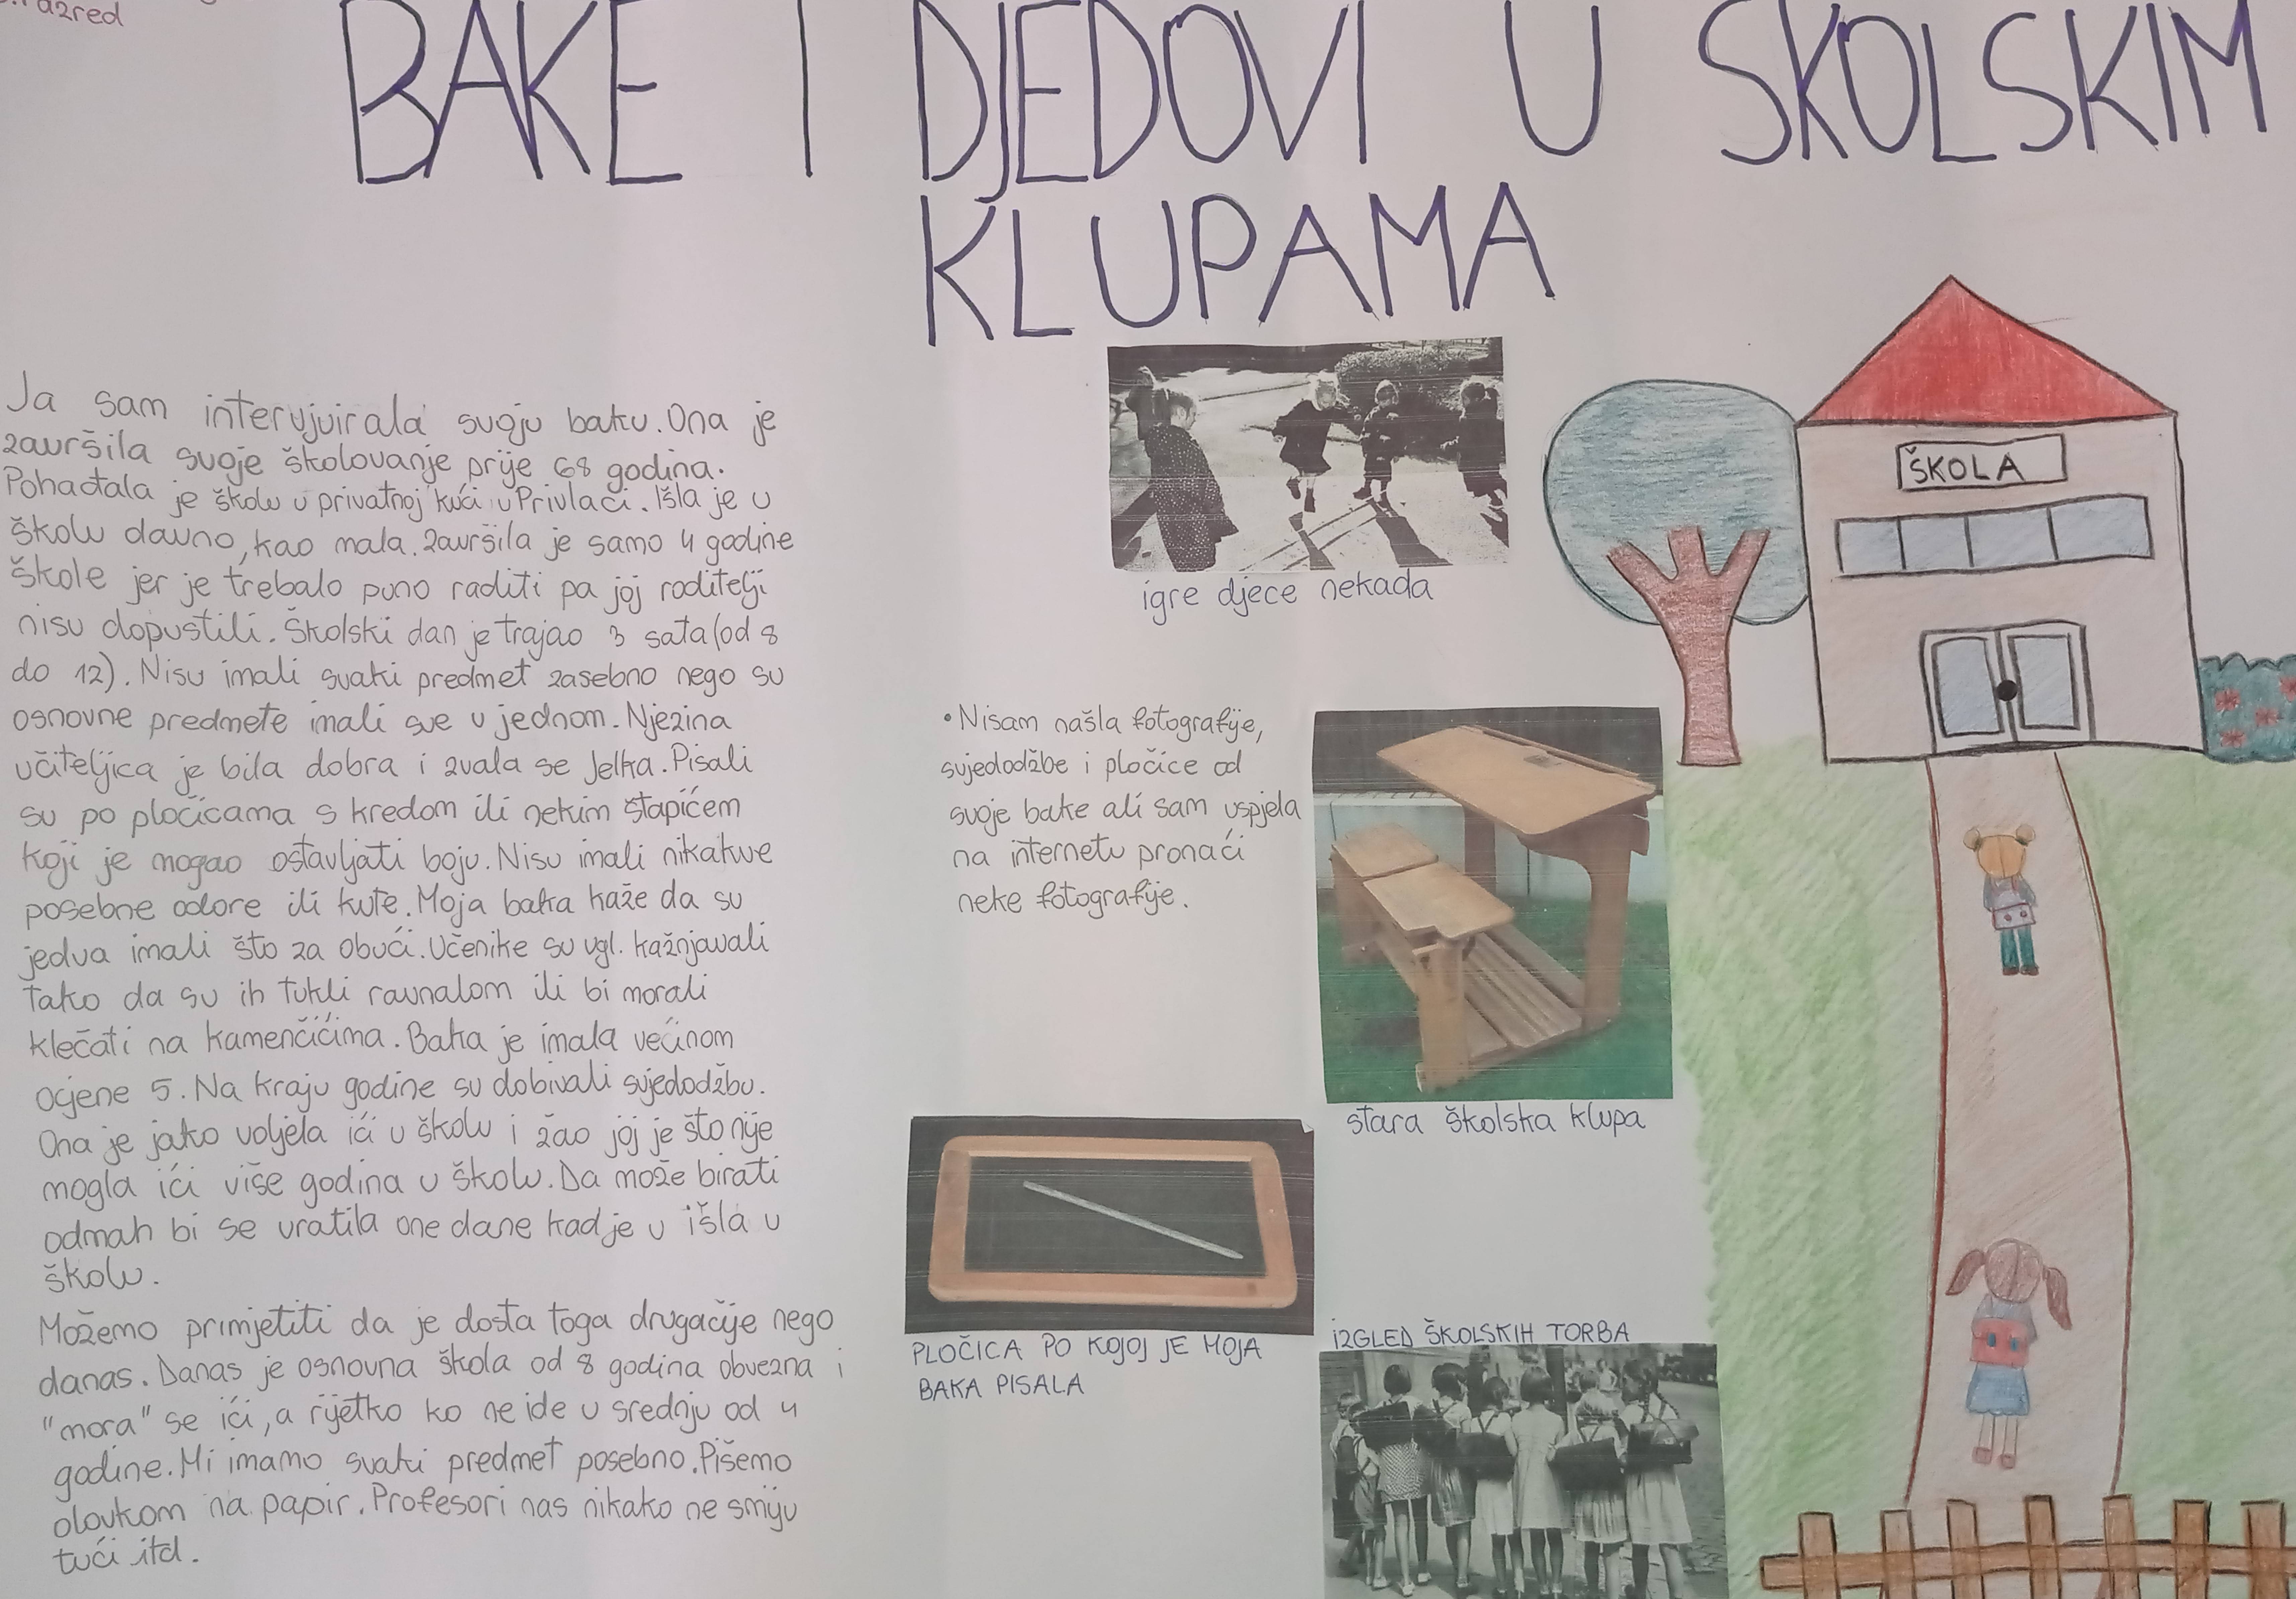 razred
BAKE I DJEDOVI U ŠKOLSKIM
KLUPAMA
Ja sam intervjuirala svoju baku. Ona je
završila svoje školovanje prije 68 godina.
Pohađala je školu u privatnoj kući u Privlaci. Išla je u
školu davno, kao mala. Završila je samo 4 godine
škole jer je trebalo puno raditi pa joj roditelji
nisu dopustili. Školski dan je trajao 3 sata (od 8
do 12). Nisu imali svaki predmet zasebno nego su
osnovne predmete imali sve u jednom. Njezina
učiteljica je bila dobra i zvala se Jelka. Pisali
su po pločicama s kredom ili nekim štapićem
koji je mogao ostavljati boju. Nisu imali nikakve
posebne odore ili kute. Moja baka kaže da su
jedva imali što za obući. Učenike su vgl. kažnjavali
tako da su ih tukli ravnalom ili bi morali
klečati na kamenčićima. Baka je imala većinom
ocjene 5. Na kraju godine su dobivali svjedodžbu.
Ona je jako voljela ići u školu i žao joj je što nije
mogla ići više godina u školu. Da može birati
odmah bi se vratila one dane kad je u išla u
školu.
Možemo primjetiti da je dosta toga drugačije nego
danas. Danas je osnovna škola od 8 godina obvezna i
"mora" se ići, a rijetko ko ne ide u srednju od 4
godine. Mi imamo svaki predmet posebno. Pišemo
olovkom na papir. Profesori nas nikako ne smiju
tući itd.
igre djece nekada
• Nisam našla fotografije,
svjedodžbe i pločice od
svoje bake ali sam uspjela
na internetu pronaći
neke fotografije.
stara školska klupa
PLOČICA PO KOJOJ JE MOJA
BAKA PISALA
IZGLED ŠKOLSKIH TORBA
ŠKOLA